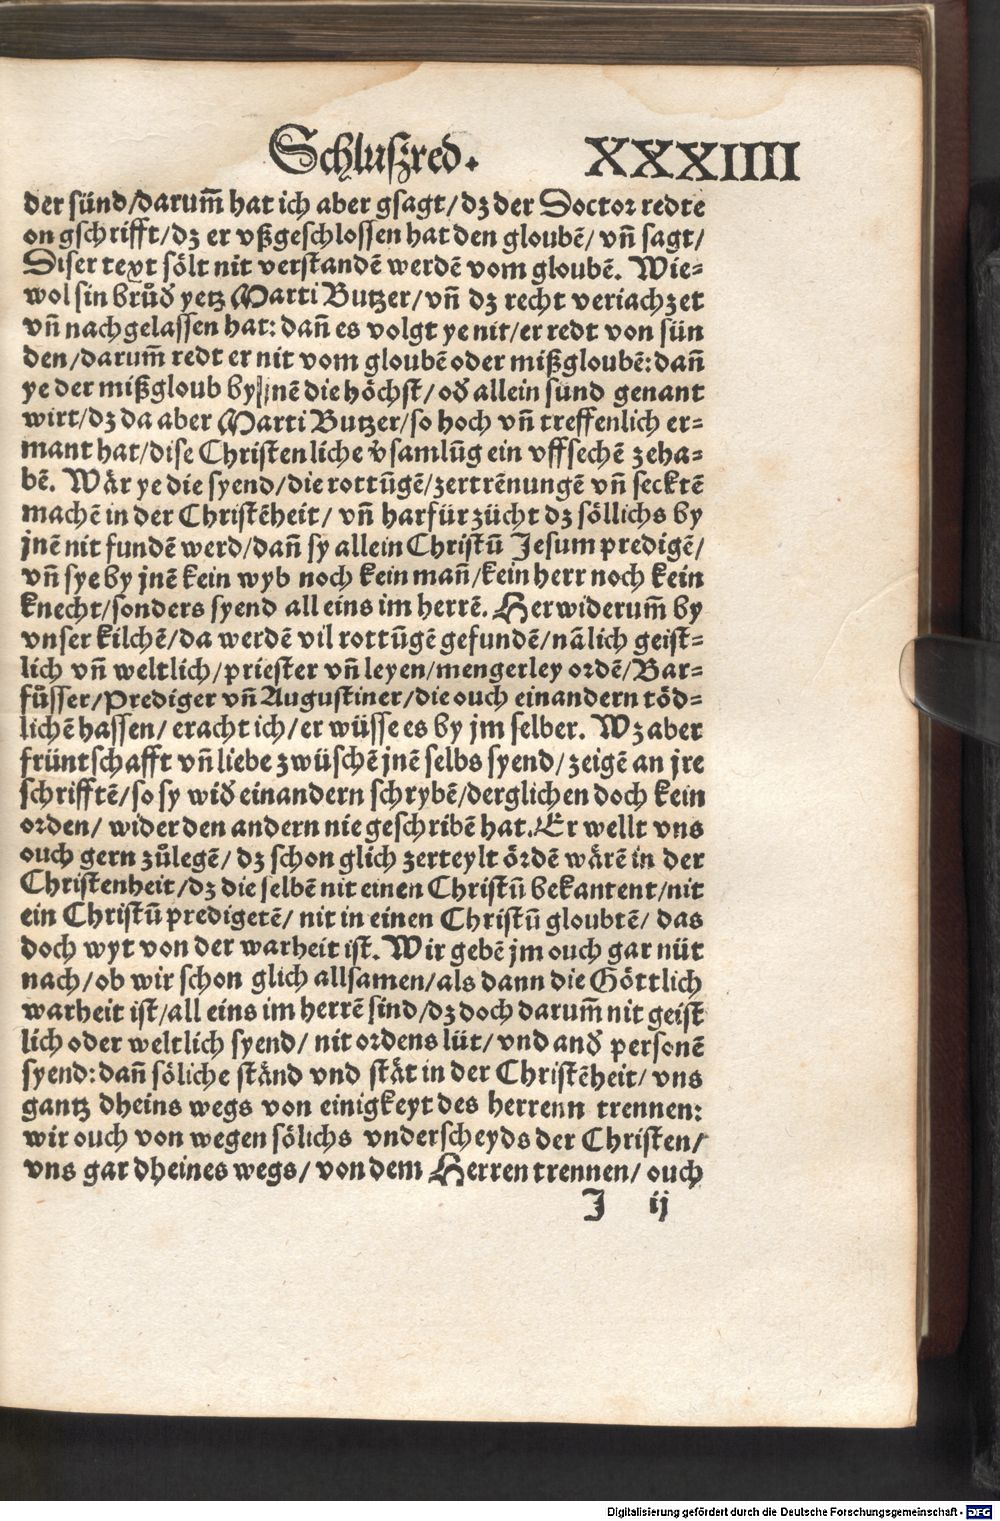 Schluszred. XXXIIII
der sünd/darum̄ hat ich aber gsagt/dz der Doctor redte
on gschrifft/dz er vßgeschlossen hat den gloubē/ vn̄ sagt/
Diser text sölt nit verstandē werdē vom gloubē. Wie=
wol sin brůd' yetz Marti Butzer/vn̄ dz recht veriachzet
vn̄ nachgelassen hat: dan̄ es volgt ye nit/er redt von sün
den/darum̄ redt er nit vom gloubē oder mißgloubē: dan̄
ye der mißgloub by jnē die höchst/od' allein sünd genant
wirt/dz da aber Marti Butzer/so hoch vn̄ treffenlich er=
mant hat/dise Christenliche v'samlūg ein vffsechē zeha=
bē. Wär ye die syend/die rottūgē/zertrēnungē vn̄ secktē
machē in der Christēheit/ vn̄ harfür zücht dz söllichs by
jnē nit fundē werd/dan̄ sy allein Christū Jesum predigē/
vn̄ sye by jnē kein wyb noch kein man̄/kein herr noch kein
knecht/sonders syend all eins im herrē. Herwiderum̄ by
vnser kilchē/da werdē vil rottūgē gefundē/nālich geist=
lich vn̄ weltlich/priester vn̄ leyen/mengerley ordē/Bar=
fůsser/Prediger vn̄ Augustiner/die ouch einandern töd=
lichē hassen/ eracht ich/er wüsse es by jm selber. Wz aber
früntschafft vn̄ liebe zwüschē jnē selbs syend/zeigē an jre
schrifftē/so sy wid' einandern schrybē/derglichen doch kein
orden/ wider den andern nie geschribē hat. Er wellt vns
ouch gern zůlegē/ dz schon glich zerteylt ördē wärē in der
Christenheit/dz die selbē nit einen Christū bekantent/nit
ein Christū predigetē/ nit in einen Christū gloubtē/ das
doch wyt von der warheit ist. Wir gebē jm ouch gar nüt
nach/ob wir schon glich allsamen/als dann die Göttlich
warheit ist/all eins im herrē sind/dz doch darum̄ nit geist
lich oder weltlich syend/ nit ordens lüt/ vnd and' personē
syend: dan̄ söliche ständ vnd stät in der Christēheit/ vns
gantz dheins wegs von einigkeyt des herrenn trennen:
wir ouch von wegen sölichs vnderscheyds der Christen/
vns gar dheines wegs/ von dem Herren trennen/ ouch
J ij
Digitalisierung gefördert durch die Deutsche Forschungsgemeinschaft - DFG